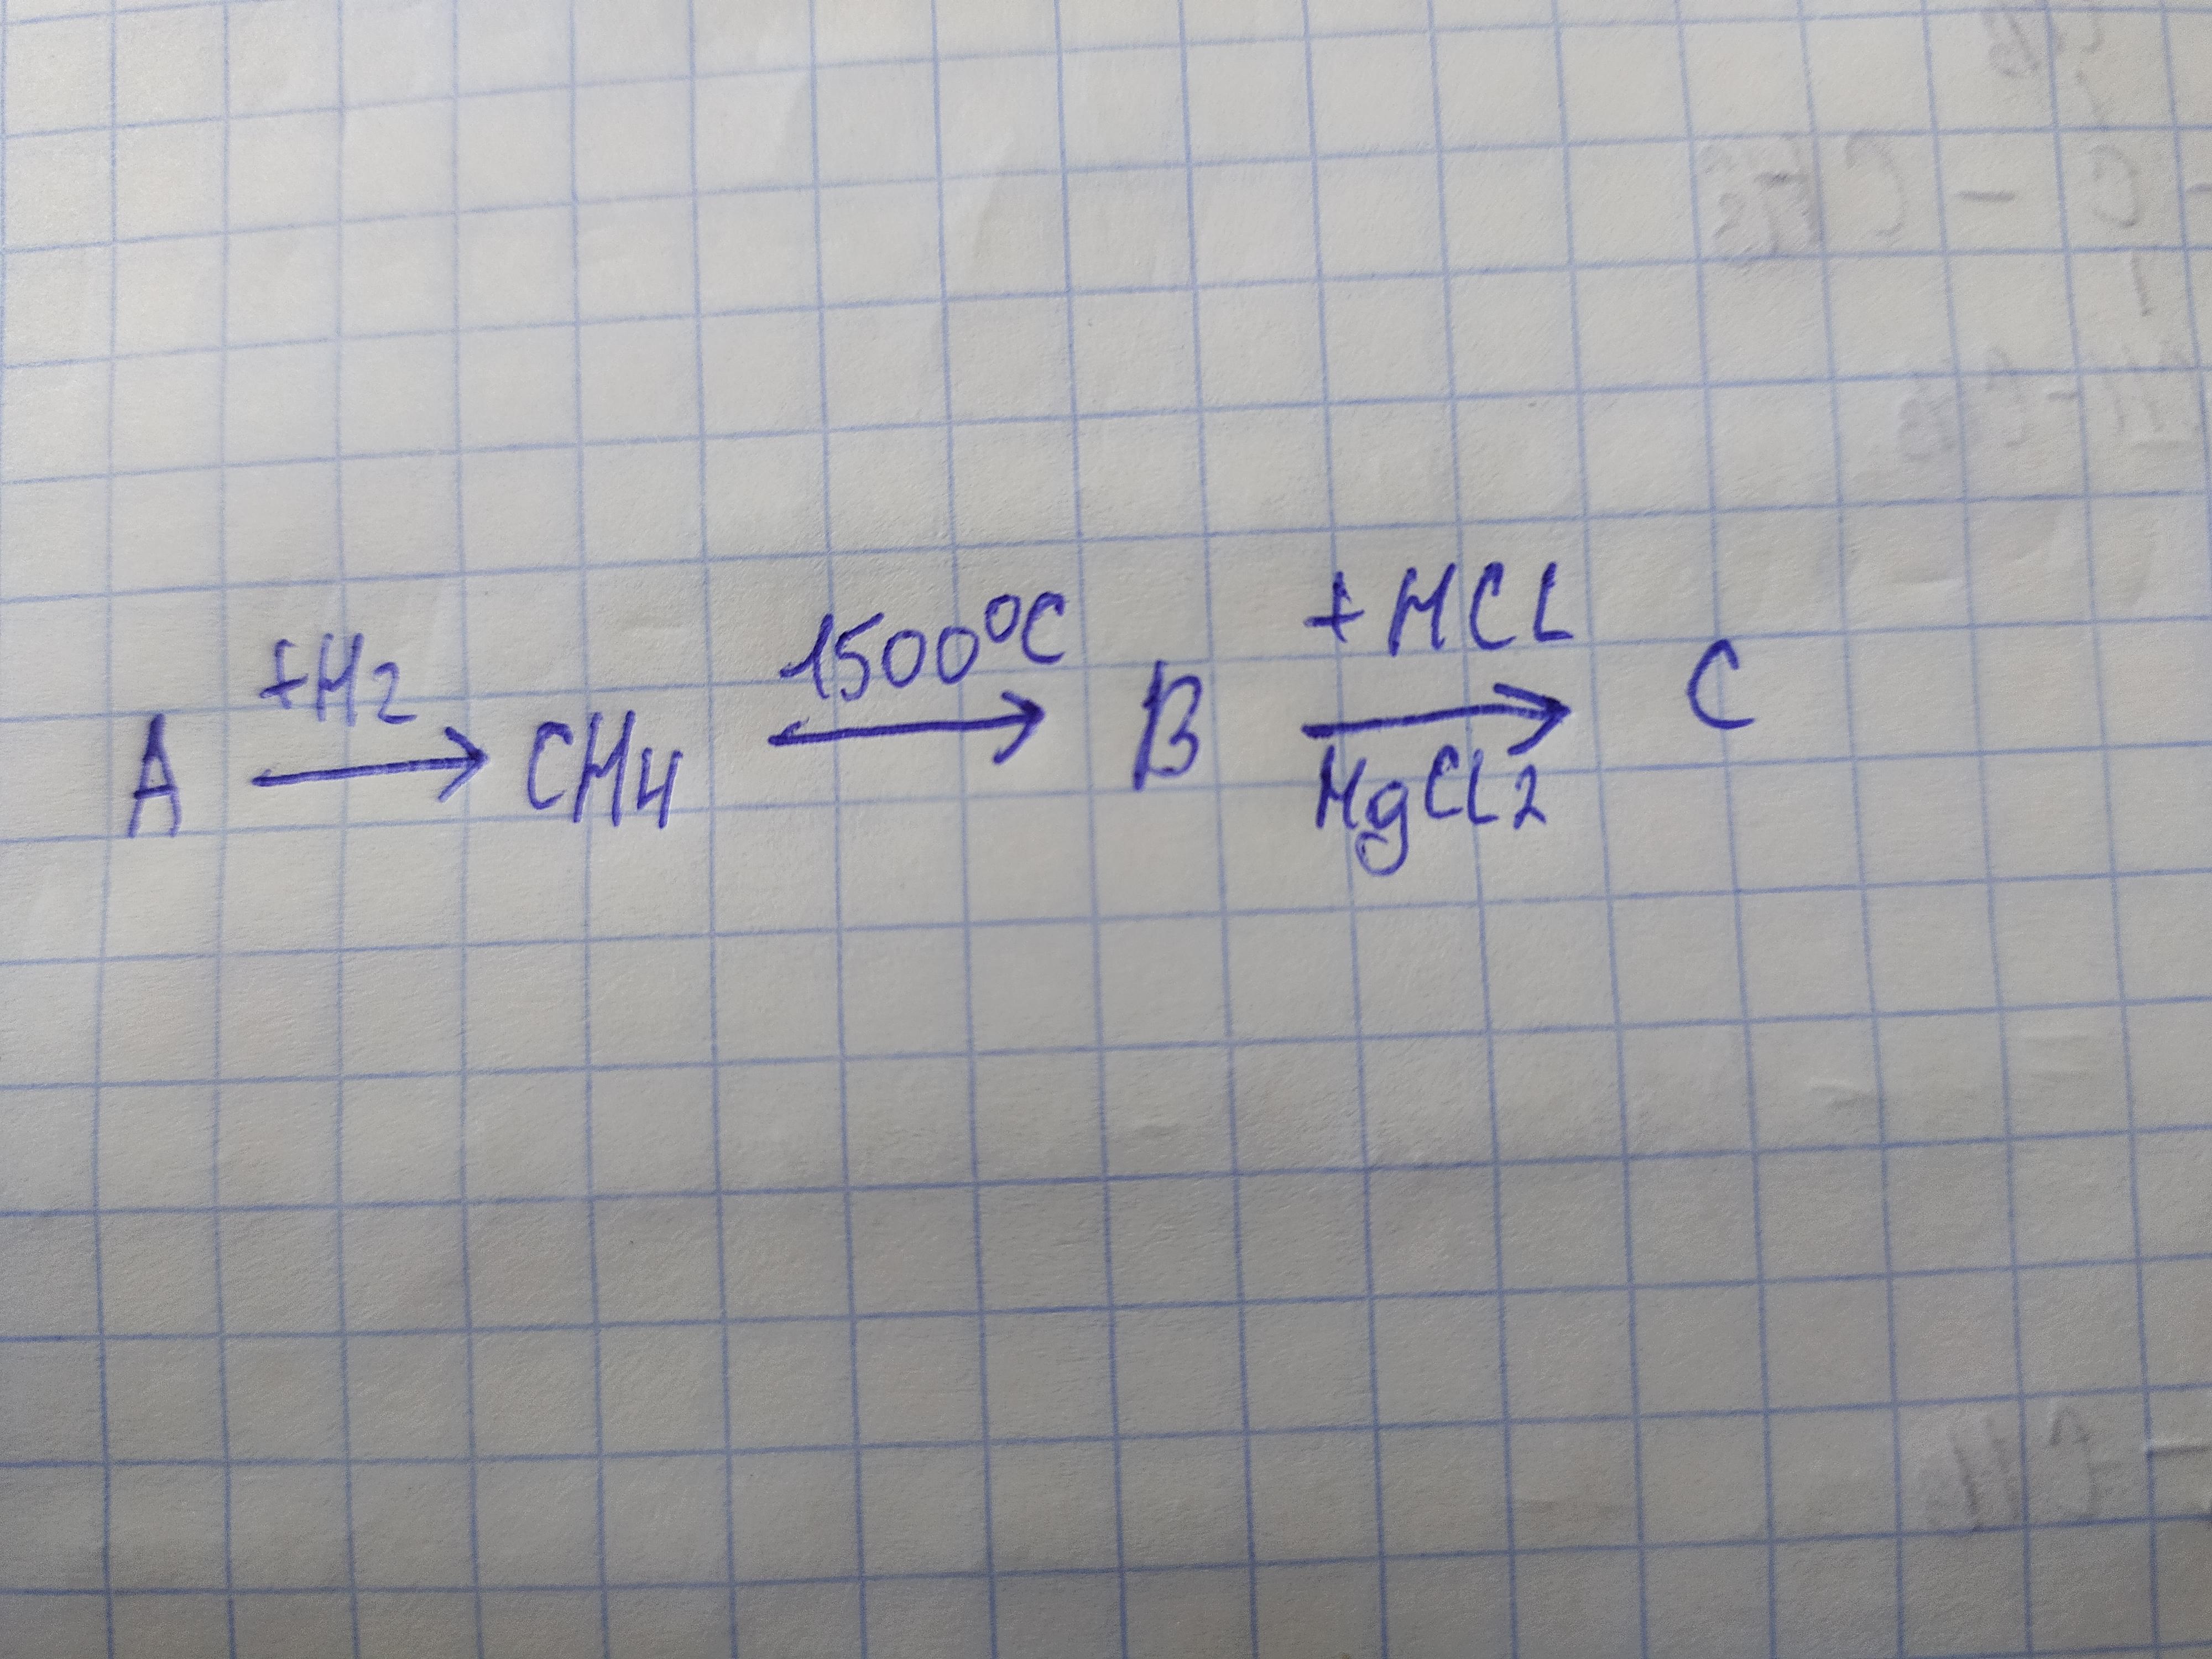 A +H2 → CH4 1500°C → B +HCl → C
HgCl2